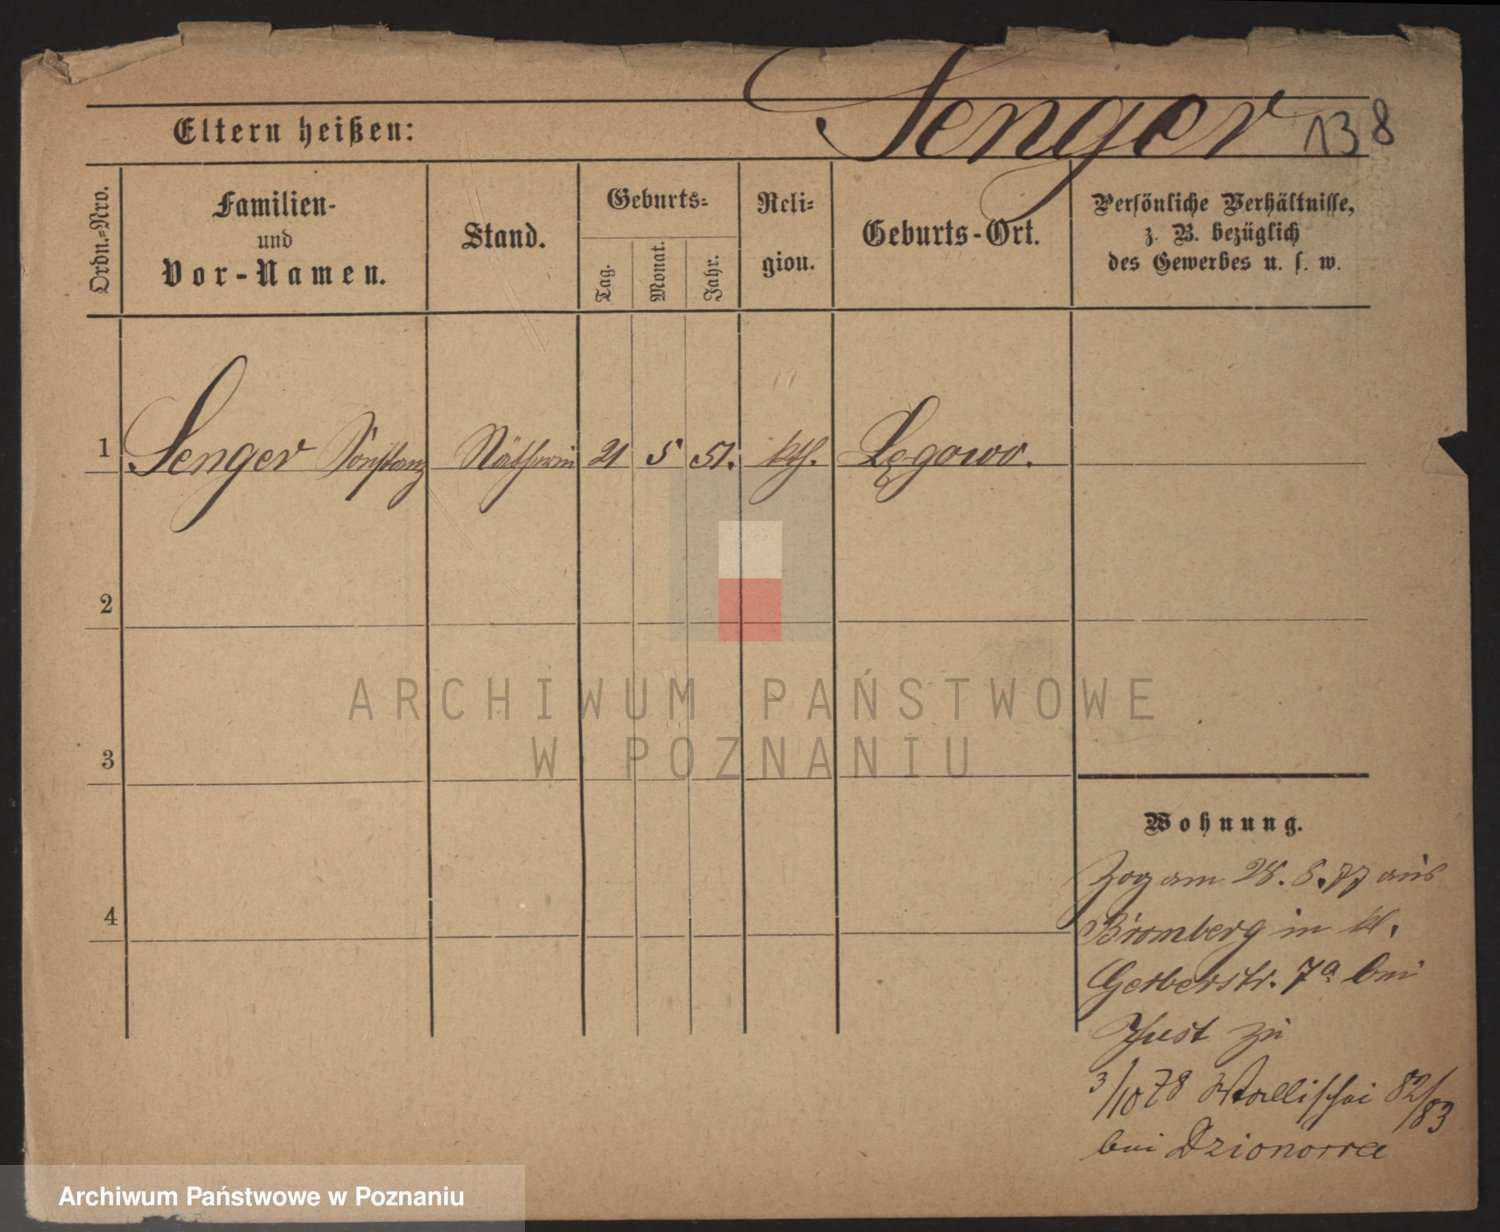 Senger 138
Eltern heißen:
Ordn.=Nro.
Familien-
und
Vor-Namen.
Stand.
Geburts=
Tag.
Monat.
Jahr.
Reli=
gion.
Geburts-Ort.
Persönliche Verhältnisse,
z. B. bezüglich
des Gewerbes u. s. w.
1 Senger Konstanz Nätherin 21 5 51. kth. Lęgowo.
2
3
4
ARCHIWUM PAŃSTWOWE
W POZNANIU
Wohnung.
Zog am 28. 8. 77 aus
Bromberg in kl.
Gerberstr. 7a bei
Just zu
3/10 78 Wallischei 82/83
bei
Archiwum Państwowe w Poznaniu